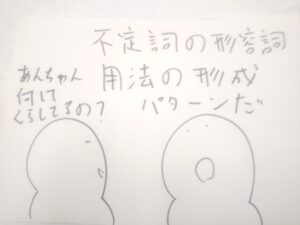 あんちゃん
何して
くらしてるの？
不定詞の形容詞
用法の形成
パターンだ